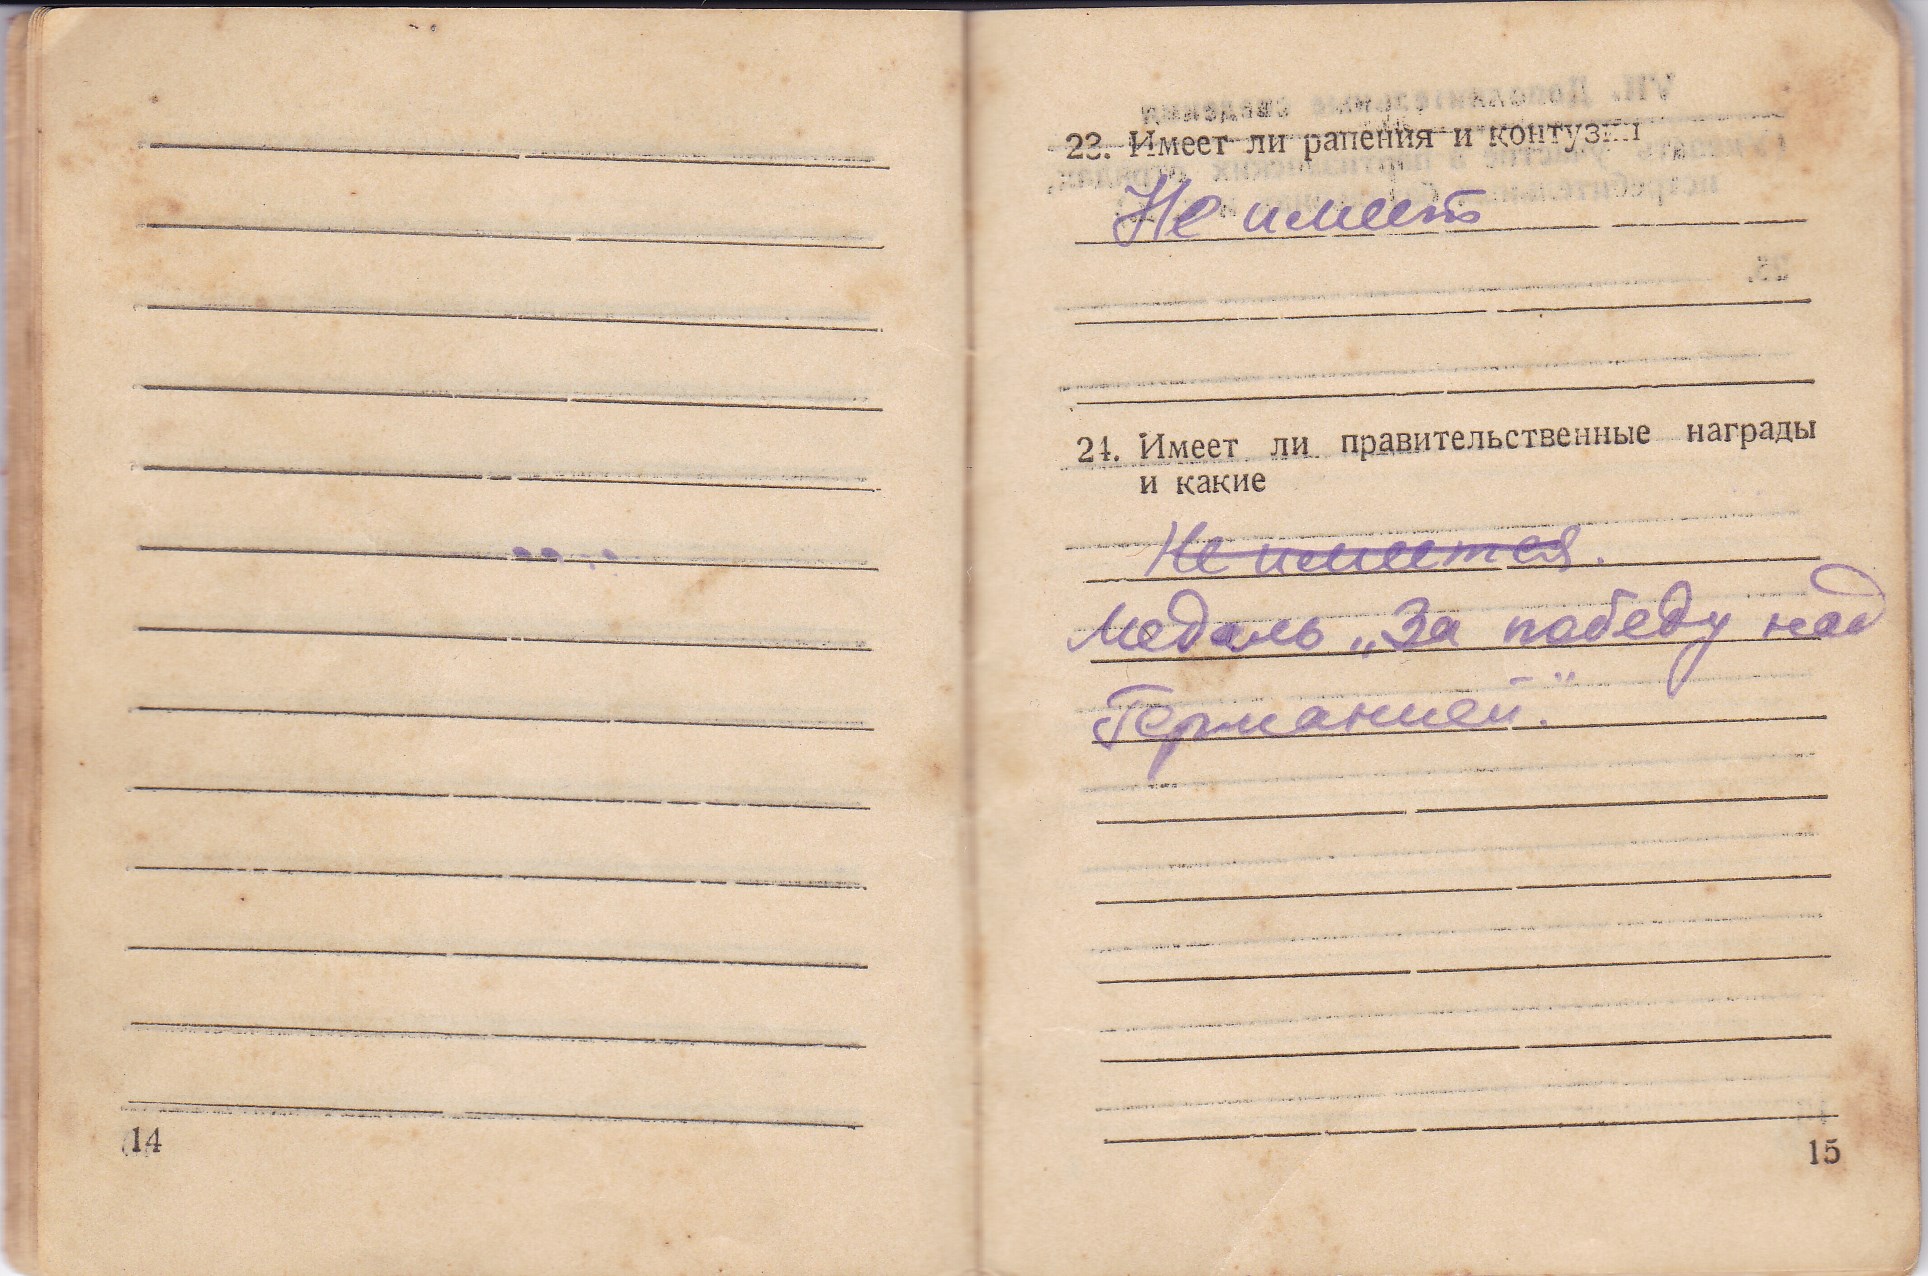 14
23. Имеет ли ранения и контузии
Не имеет
24. Имеет ли правительственные награды
и какие
Не имеется.
Медаль „За победу над
Германией".
15